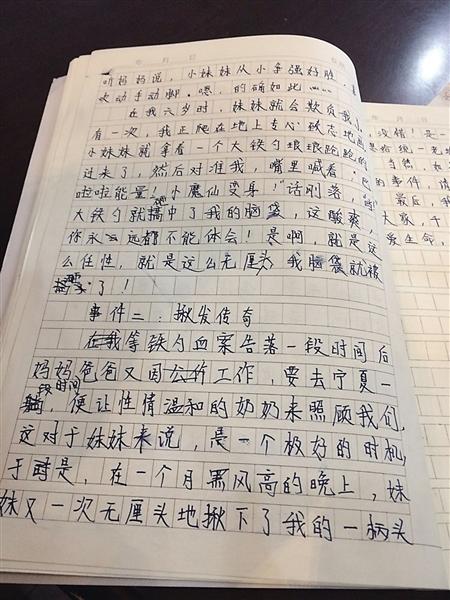 听妈妈说，小妹妹从小争强好胜，喜
欢动手动脚。嗯，的确如此……
在我六岁时，妹妹就会欺负我了
有一次，我正爬在地上专心致志地画
小妹妹就拿着一个大铁勺踉踉跄跄的
过来了，然后对准我，嘴里喊着：巴
啦啦能量！小魔仙变身！”话刚落，
大铁勺就搞中了我的脑袋，这酸爽，
你永远都不能体会！是啊，就是这
么任性，就是这么无厘头，我脑袋就被
了！
事件二：揪发传奇
在我等铁勺血案告落一段时间后
妈妈爸爸又因公工作，要去宁夏一
段时间，便让性情温和的奶奶来照顾我们，
这对于妹妹来说，是一个极好的时机，
于是，在一个月黑风高的晚上，妹
妹又一次无厘头地揪下了我的一柄头
没错！是一
当然，
的事件，
最后，我
大家，千
爱生命，